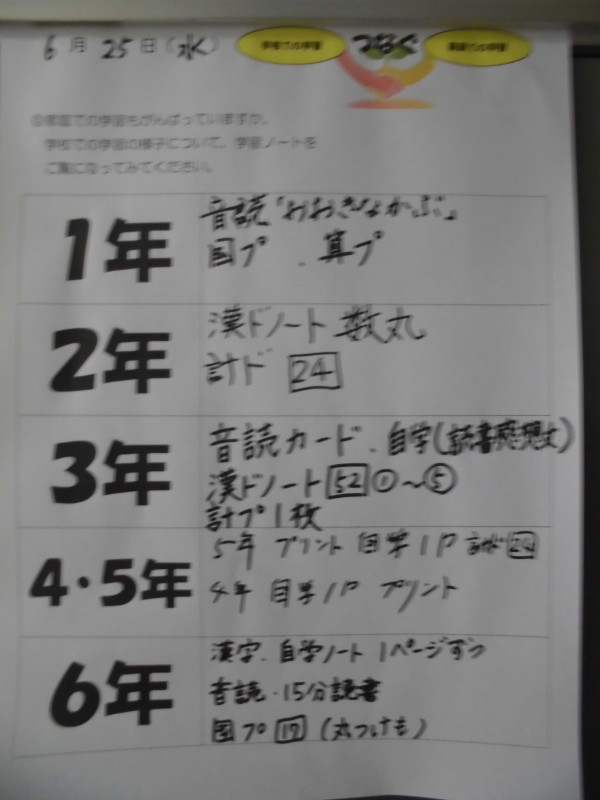 6月25日(水)
学校での学習 つなぐ 家庭での学習
◎家庭での学習もがんばっていますか。
学校での学習の様子について、学習ノートを
ご覧になってみてください。
1年
音読「おおきなかぶ」
国プ 、算プ
2年
漢ドノート 数丸
計ド 24
3年
音読カード、自学(読書感想文)
漢ドノート 52 ①〜⑤
計プ1枚
4・5年
5年 プリント 自学1P 計ド 24
4年 自学1P プリント
6年
漢字、自学ノート 1ページずつ
音読・15分読書
国プ 17 (丸つけも)